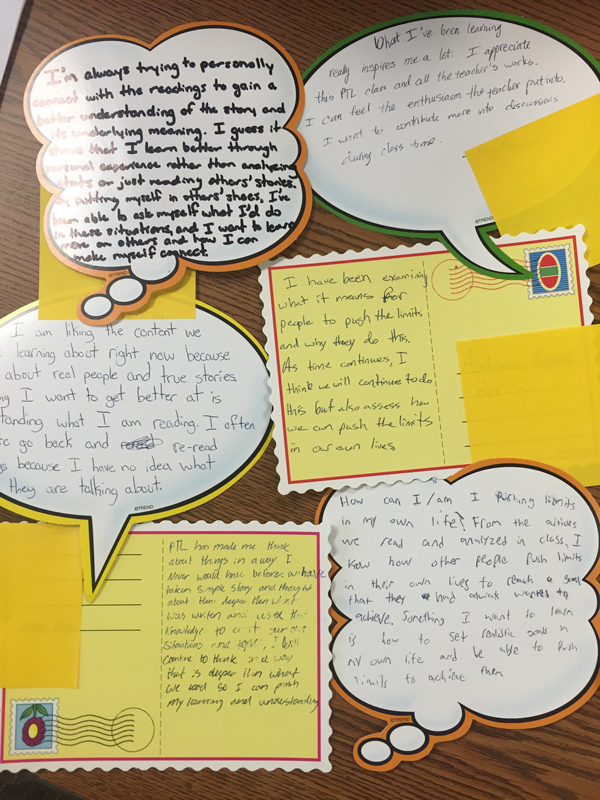 I'm always trying to personally
connect with the readings to gain a
better understanding of the story and
its underlying meaning. I guess it
shows that I learn better through
personal experience rather than analyzing
stats or just reading others' stories.
putting myself in others' shoes, I've
been able to ask myself what I'd do
in these situations, and I want to learn
more on others and how I can
make myself connect.
©TREND
What I've been learning
really inspires me a lot. I appreciate
this PTL class and all the teacher's works.
I can feel the enthusiasm the teacher put into.
I want to contribute more into discussions
during class time.
©TREND
I have been examining
what it means for
people to push the limits
and why they do this.
As time continues, I
think we will continue to do
this but also assess how
we can push the limits
in our own lives.
I am liking the content we
learning about right now because
about real people and true stories.
I want to get better at is
standing what I am reading. I often
to go back and re-read
because I have no idea what
they are talking about.
©TREND
How can I/am I pushing limits
in my own life? From the articles
we read and analyzed in class, I
know how other people push limits
in their own lives to reach a goal
that they had always wanted to
achieve. Something I want to learn
is how to set realistic goals in
my own life and be able to push
limits to achieve them
©TREND
PTL has made me think
about things in a way I
Never would have before. We have
taken simple story and thought
about them deeper then what
was written and used this
knowledge to
situations and I will
continue to think in a way
that is deeper than what
we read so I can push
my learning and understanding